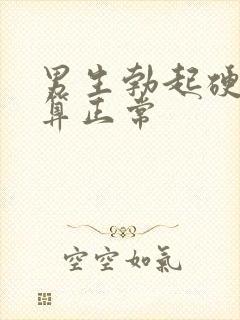 男生勃起硬
算正常
空空如氣